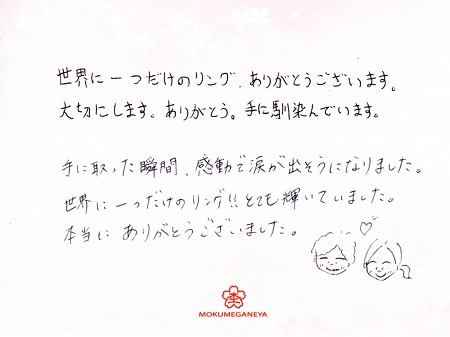 世界に一つだけのリング、ありがとうございます。
大切にします。ありがとう。手に馴染んでいます。
手に取った瞬間、感動で涙が出そうになりました。
世界に一つだけのリング!!とても輝いていました。
本当にありがとうございました。
MOKUMEGANEYA